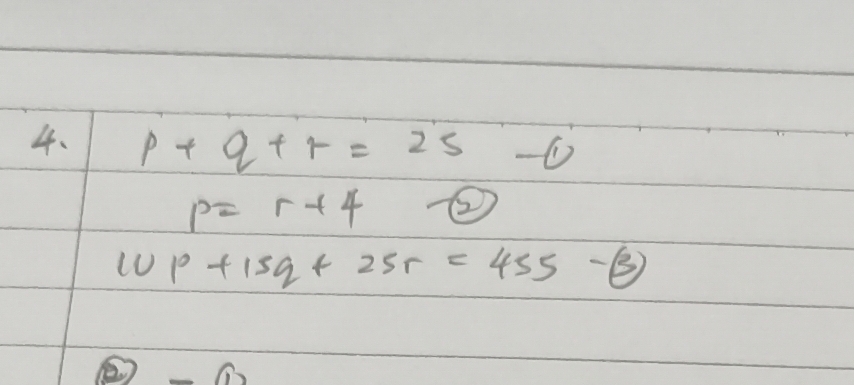 4. p + q + r = 25 - ①
p = r + 4 - ②
10p + 15q + 25r = 455 - ③
② - ①